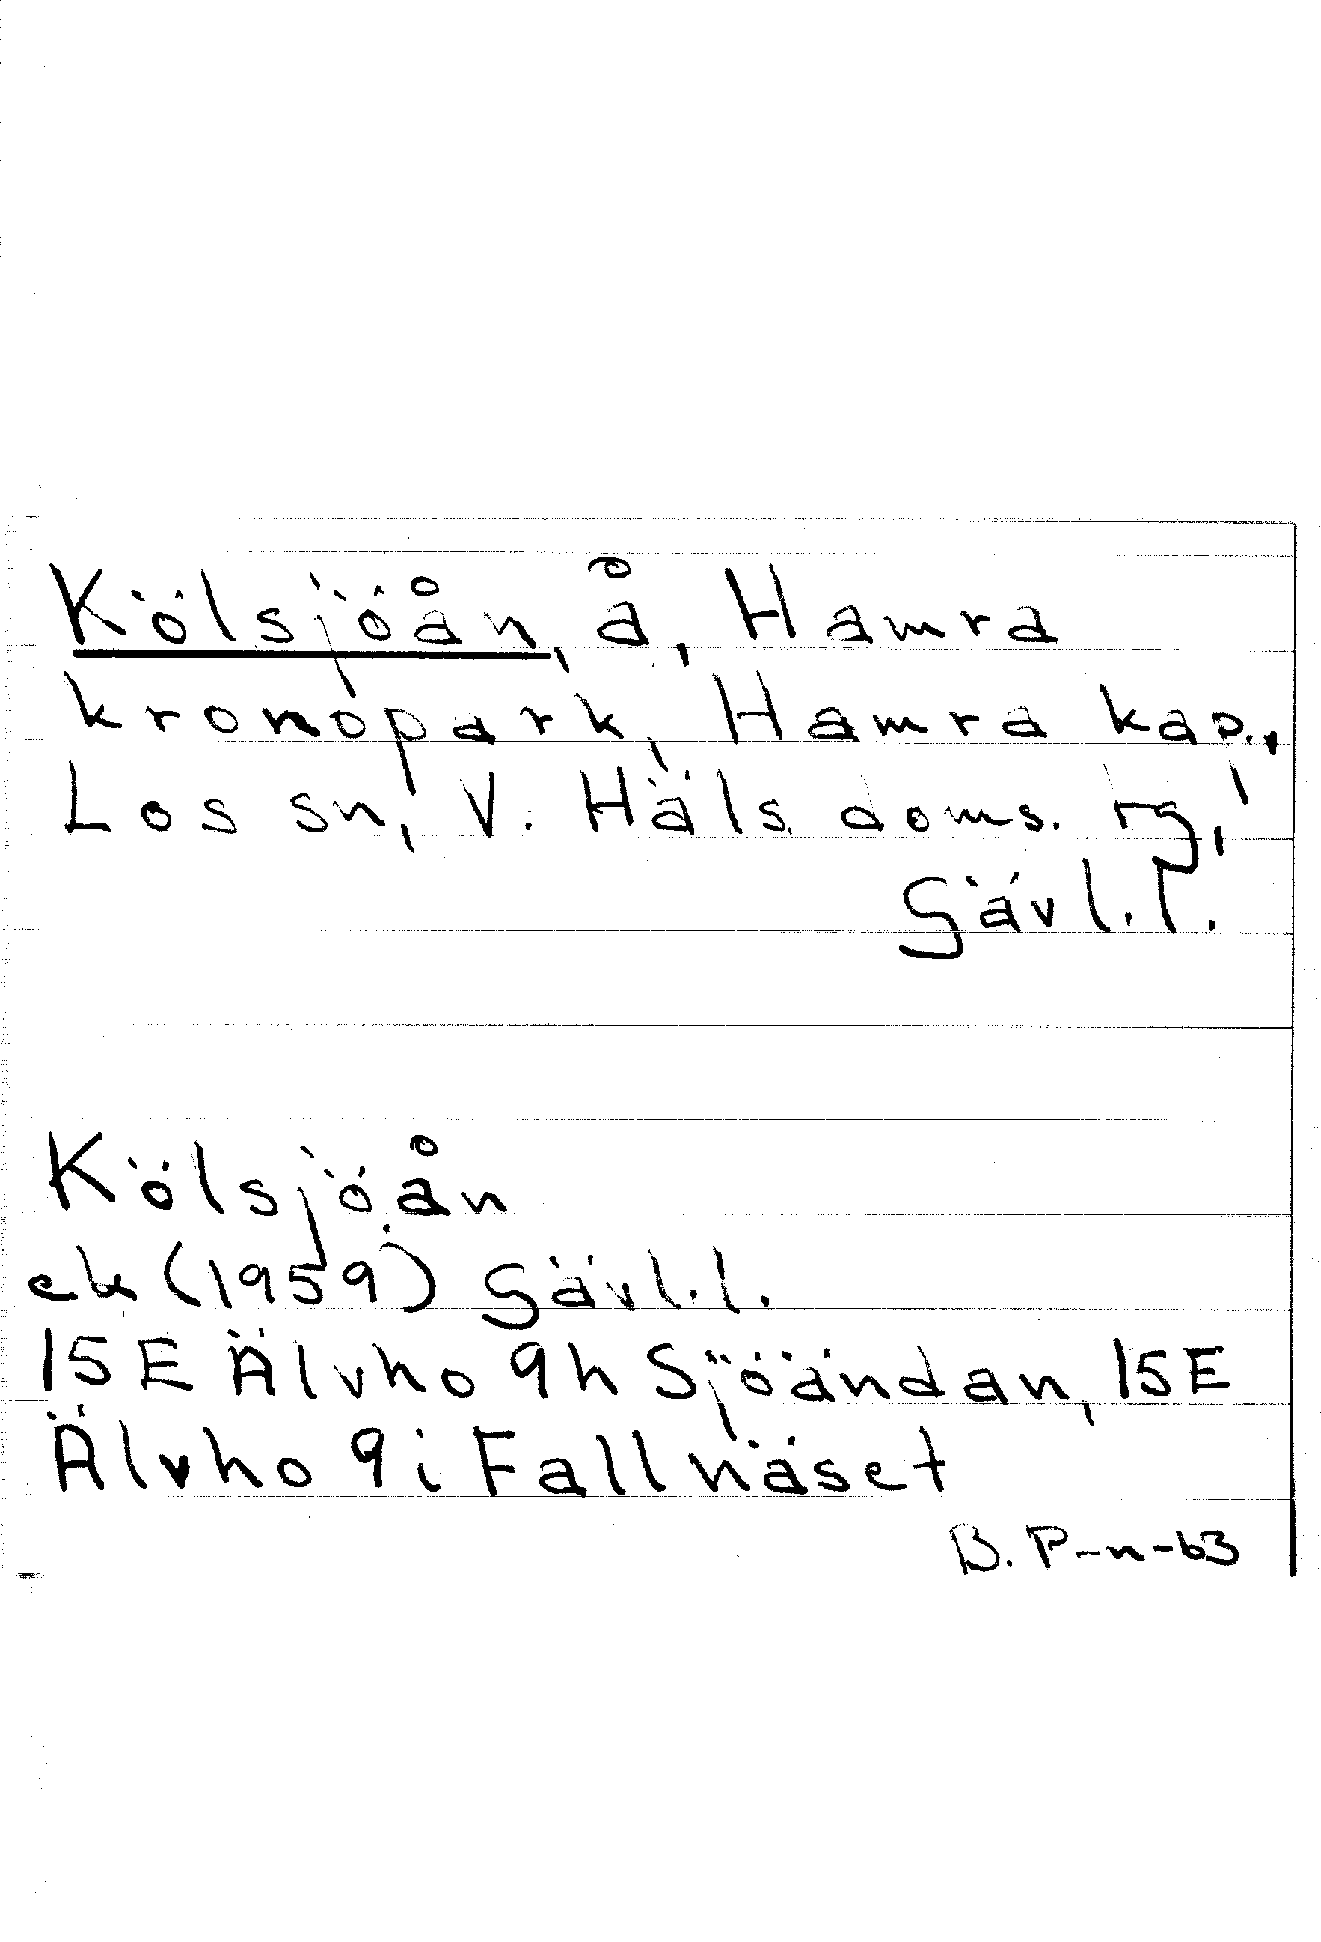 Kölsjöån, å, Hamra
kronopark, Hamra kap.,
Los sn, V. Häls. doms. rg,
Gävl.l.
Kölsjöån
ek (1959) Gävl.l.
15E Älvho 9h Sjöändan, 15E
Älvho 9i Fallnäset
B. P-n-63